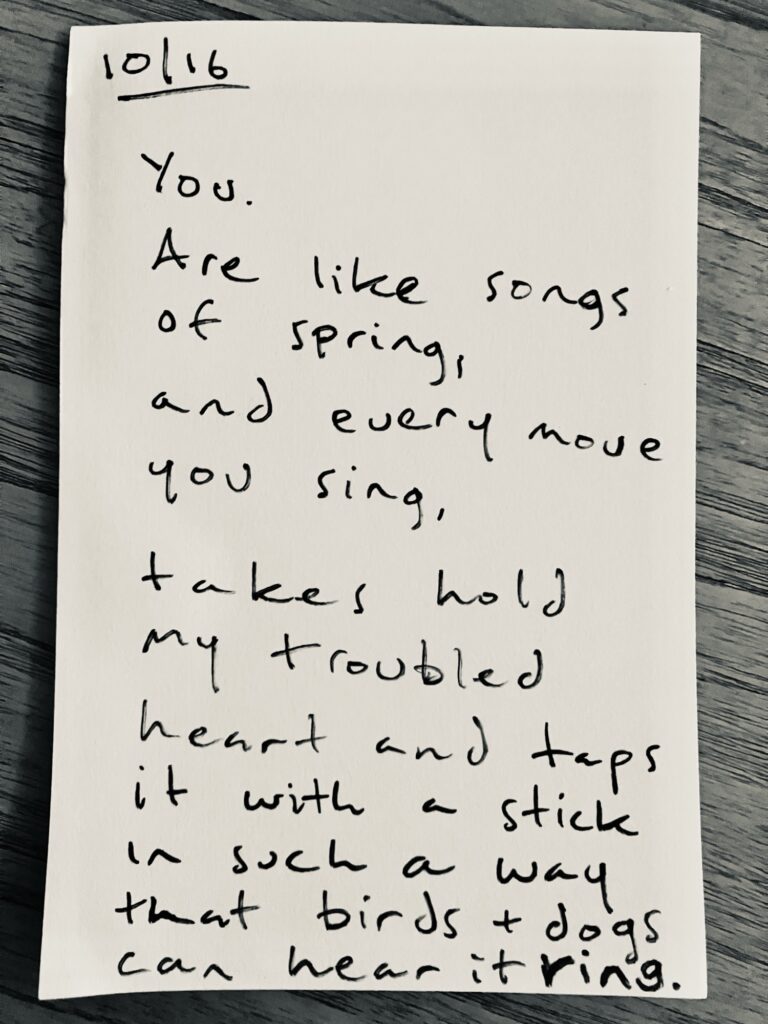 10/16
You.
Are like songs
of spring,
and every move
you sing,
takes hold
my troubled
heart and taps
it with a stick
in such a way
that birds + dogs
can hear it ring.